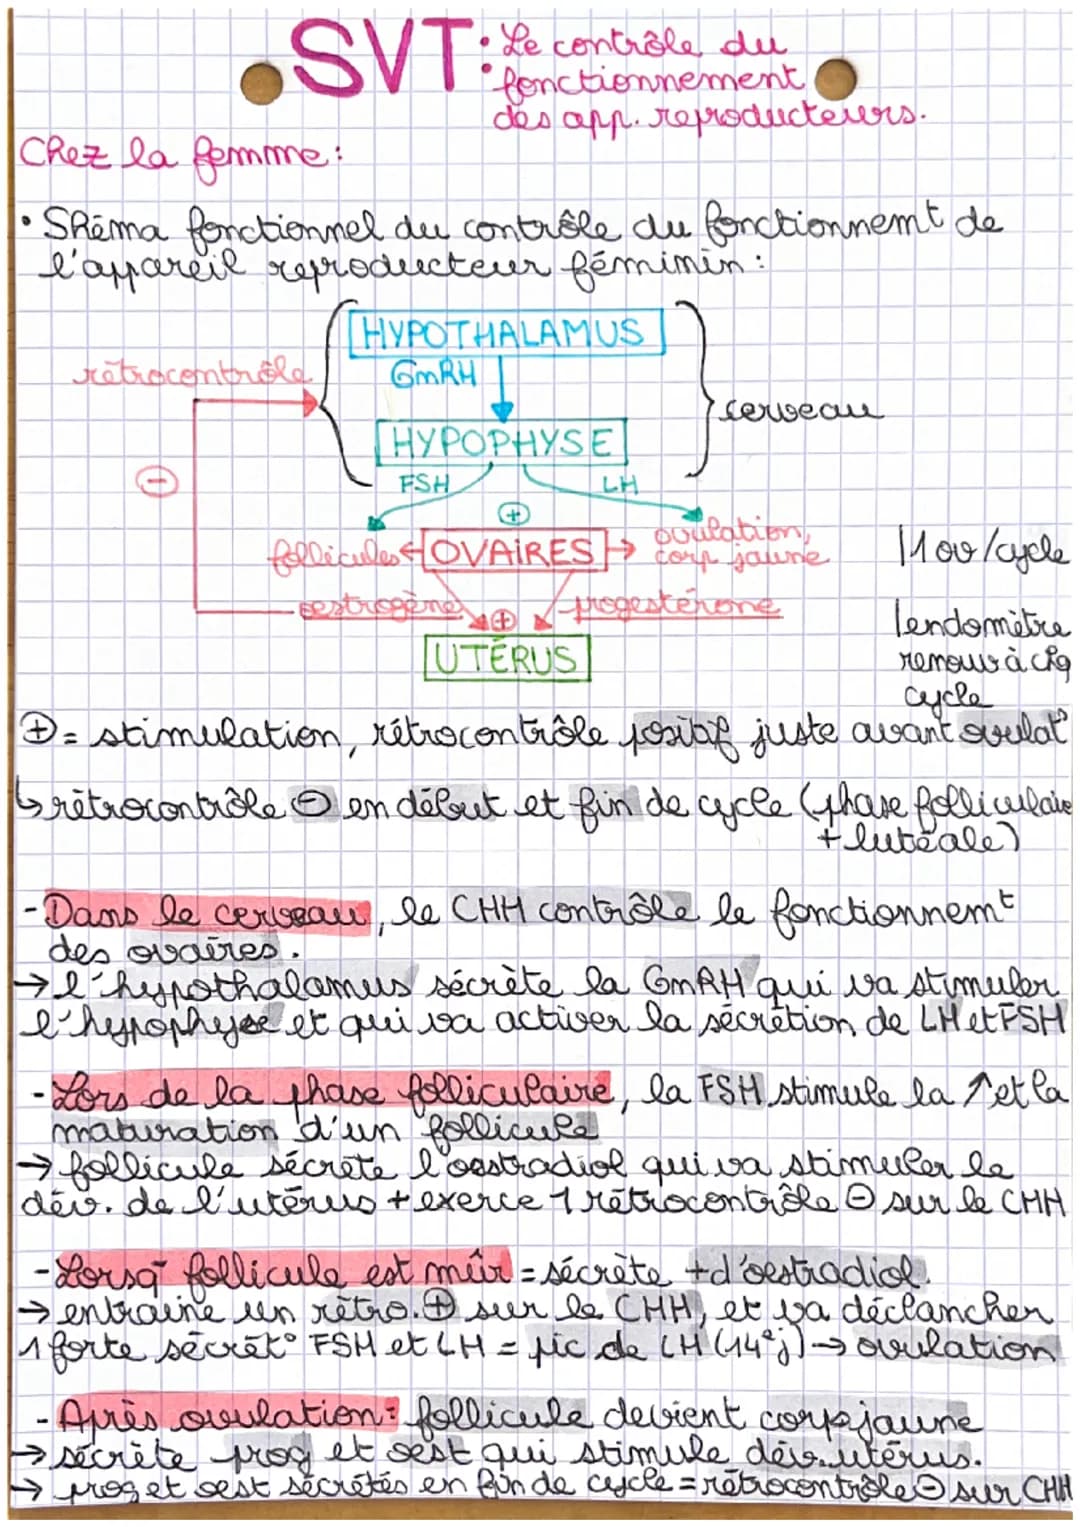 SVT: Le contrôle du
fonctionnement
des app. reproducteurs.
Chez la femme:
• Shéma fonctionnel du contrôle du fonctionnemt de
l'appareil reproducteur féminin:
HYPOTHALAMUS
rétrocontrôle
GmRH
cerveau
HYPOPHYSE
⊖
FSH
LH
⊕
follicules ← OVAIRES → ovulation,
corp jaune
1 ov/cycle
oestrogène
progestérone
⊕
UTÉRUS
l'endomètre
renouv à chq
cycle
⊕ = stimulation, rétrocontrôle positif juste avant ovulat°
↳ rétrocontrôle ⊖ en début et fin de cycle (phase folliculaire
+ lutéale)
- Dans le cerveau, le CHH contrôle le fonctionnemt
des ovaires.
→ l'hypothalamus sécrète la GmRH qui va stimuler
l'hypophyse et qui va activer la sécrétion de LH et FSH
- Lors de la phase folliculaire, la FSH stimule la ↑ et la
maturation d'un follicule
→ follicule sécrète l'oestradiol qui va stimuler le
dév. de l'utérus + exerce 1 rétrocontrôle ⊖ sur le CHH
- Lorsq follicule est mûr = sécrète + d'oestradiol.
→ entraine un rétro. ⊕ sur le CHH, et va déclancher
1 forte sécrét° FSH et LH = pic de LH (14e j) → ovulation
- Après ovulation: follicule devient corps jaune
→ sécrète prog et oest qui stimule dév. utérus.
→ prog et oest sécrétés en fin de cycle = rétrocontrôle ⊖ sur CHH